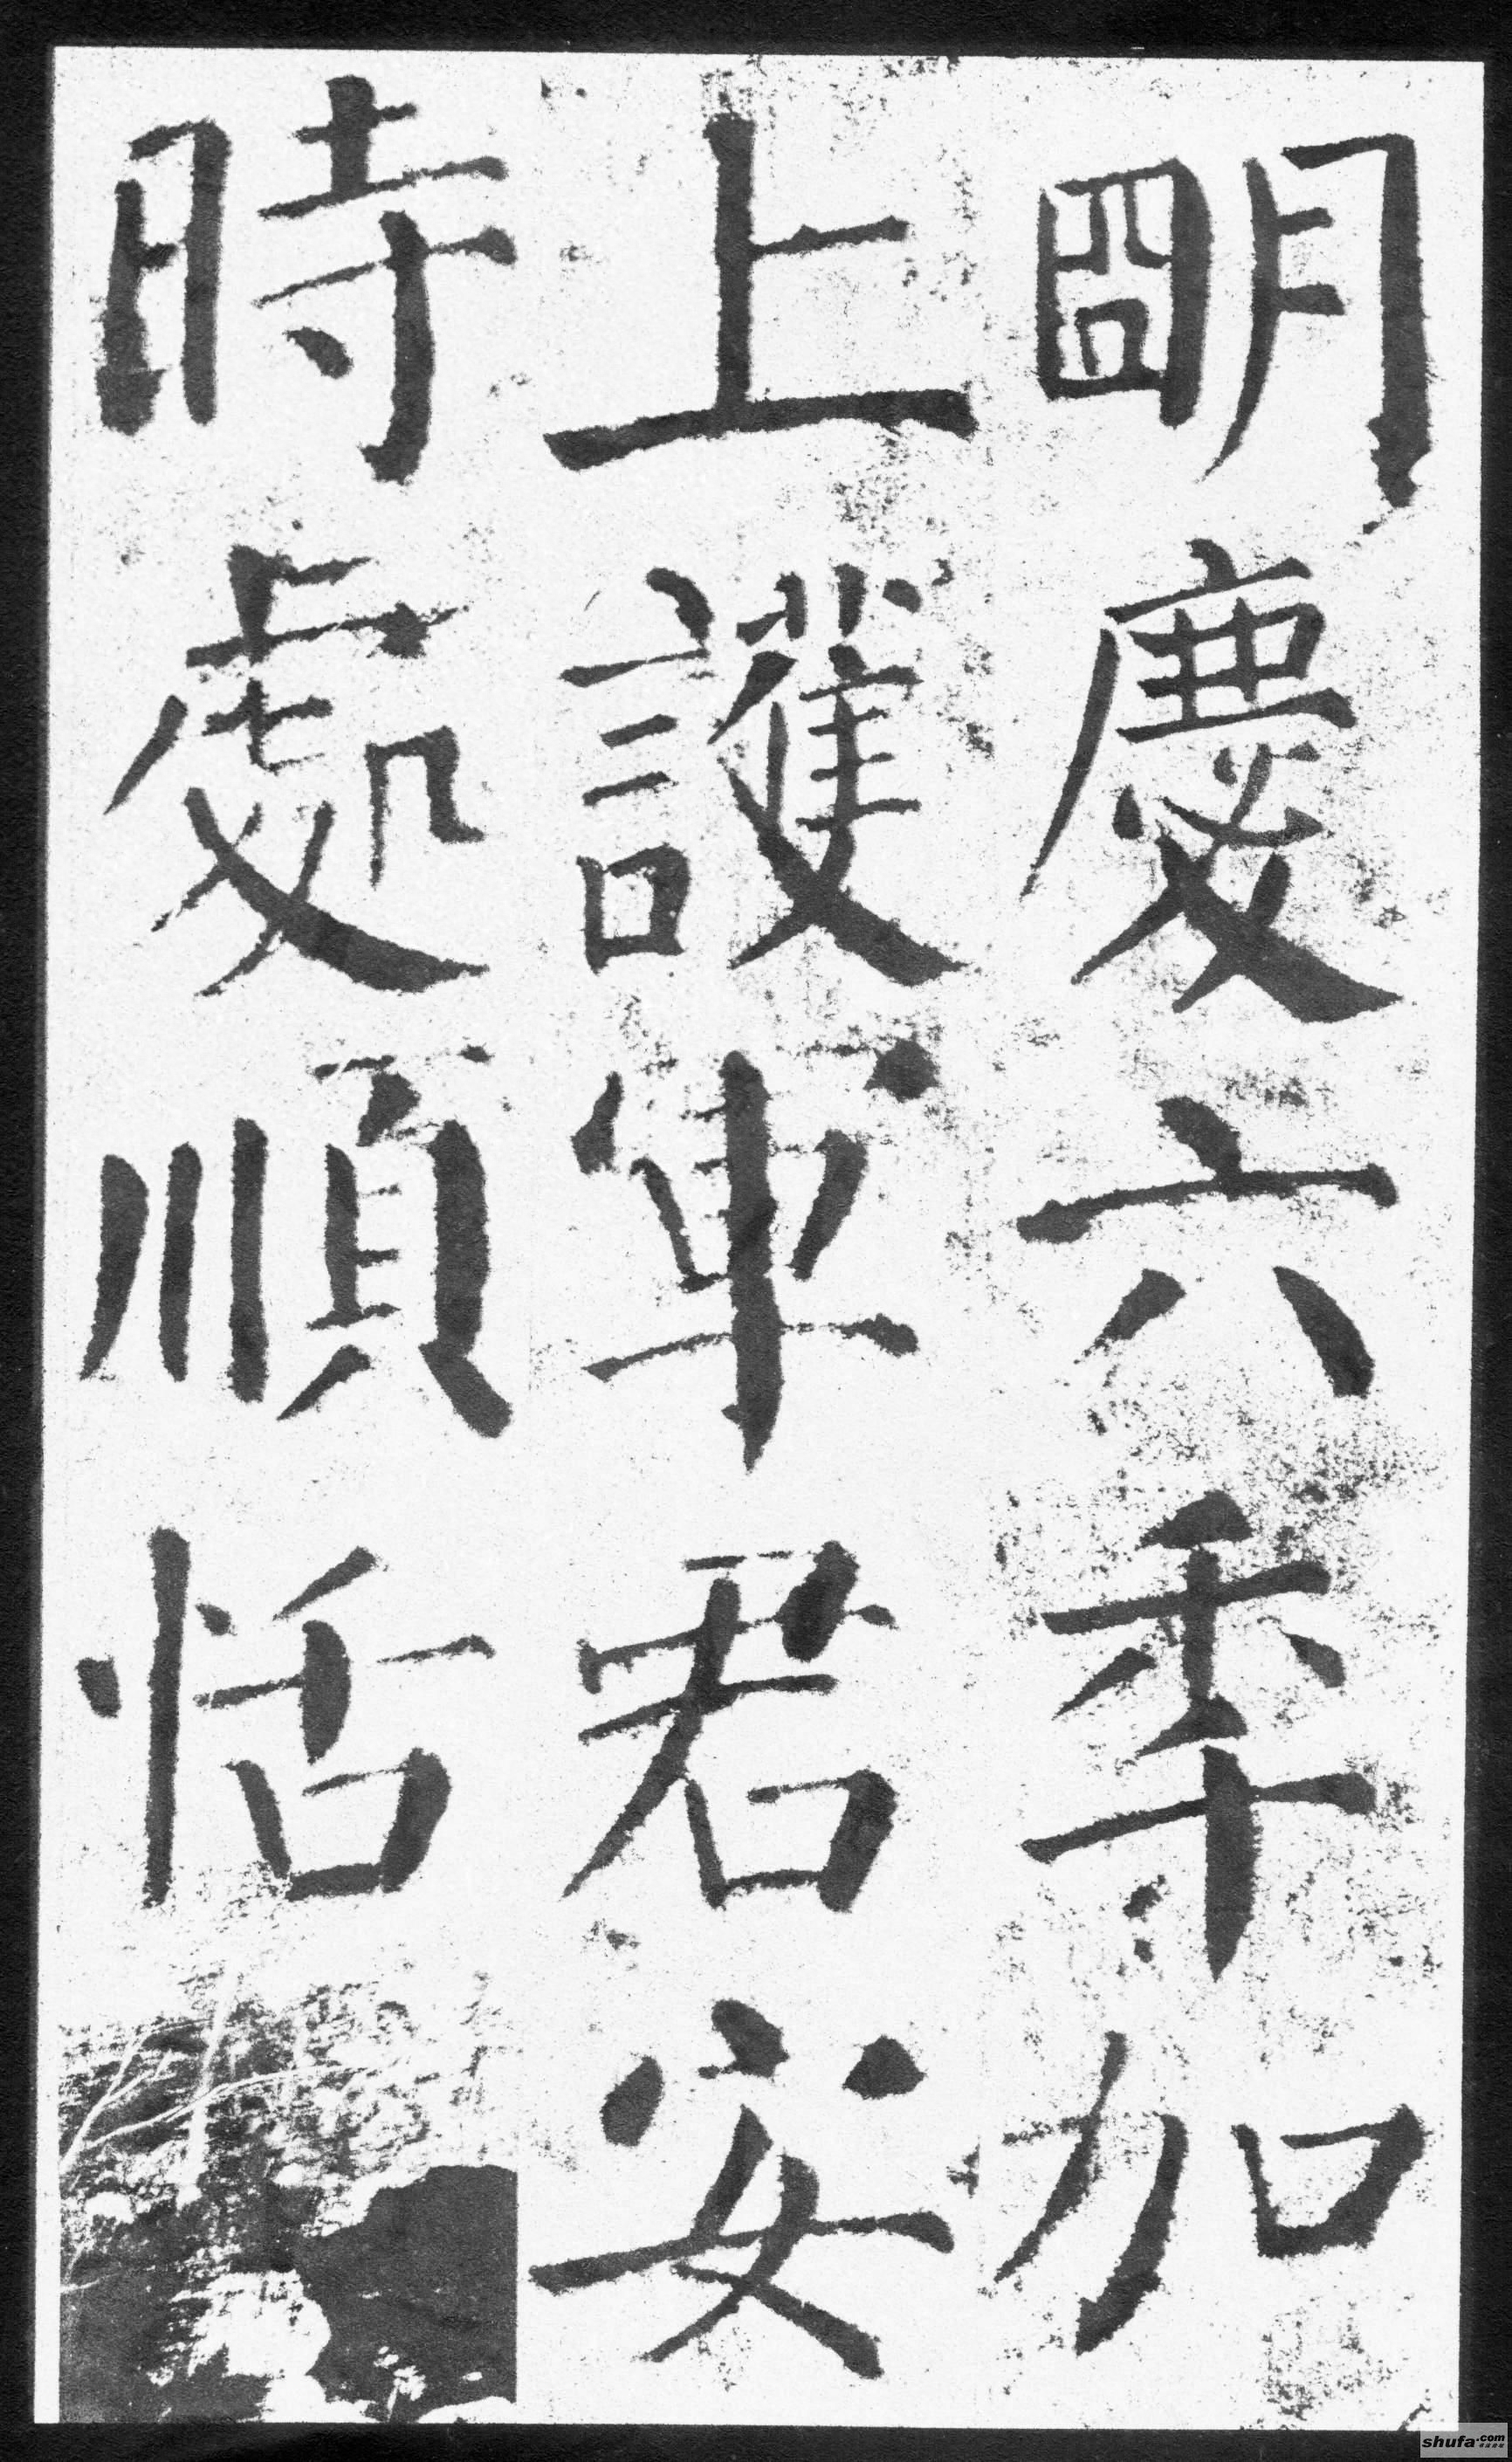 明慶六秊加
上護軍君安
時處順恬
shufa.com